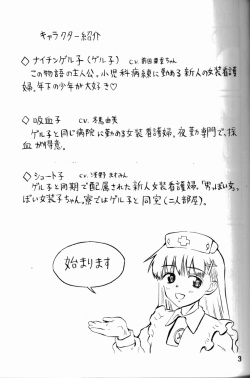 キャラクター紹介
◇ナイチンゲル子(ゲル子) cv.前田亜季ちゃん
この物語の主人公。小児科病練に勤める新人の女装看護
婦。年下の少年が大好き♡
◇吸血子 cv.
ゲル子と同じ病院に勤める女装看護婦。夜勤専門で、採
血が得意。
◇ショート子 cv.浅野ますみん
ゲル子と同期で配属された新人女装看護婦。「男っぽい女っ
ぽい女装子ちゃん。寮ではゲル子と同室(二人部屋)。
始まります
3